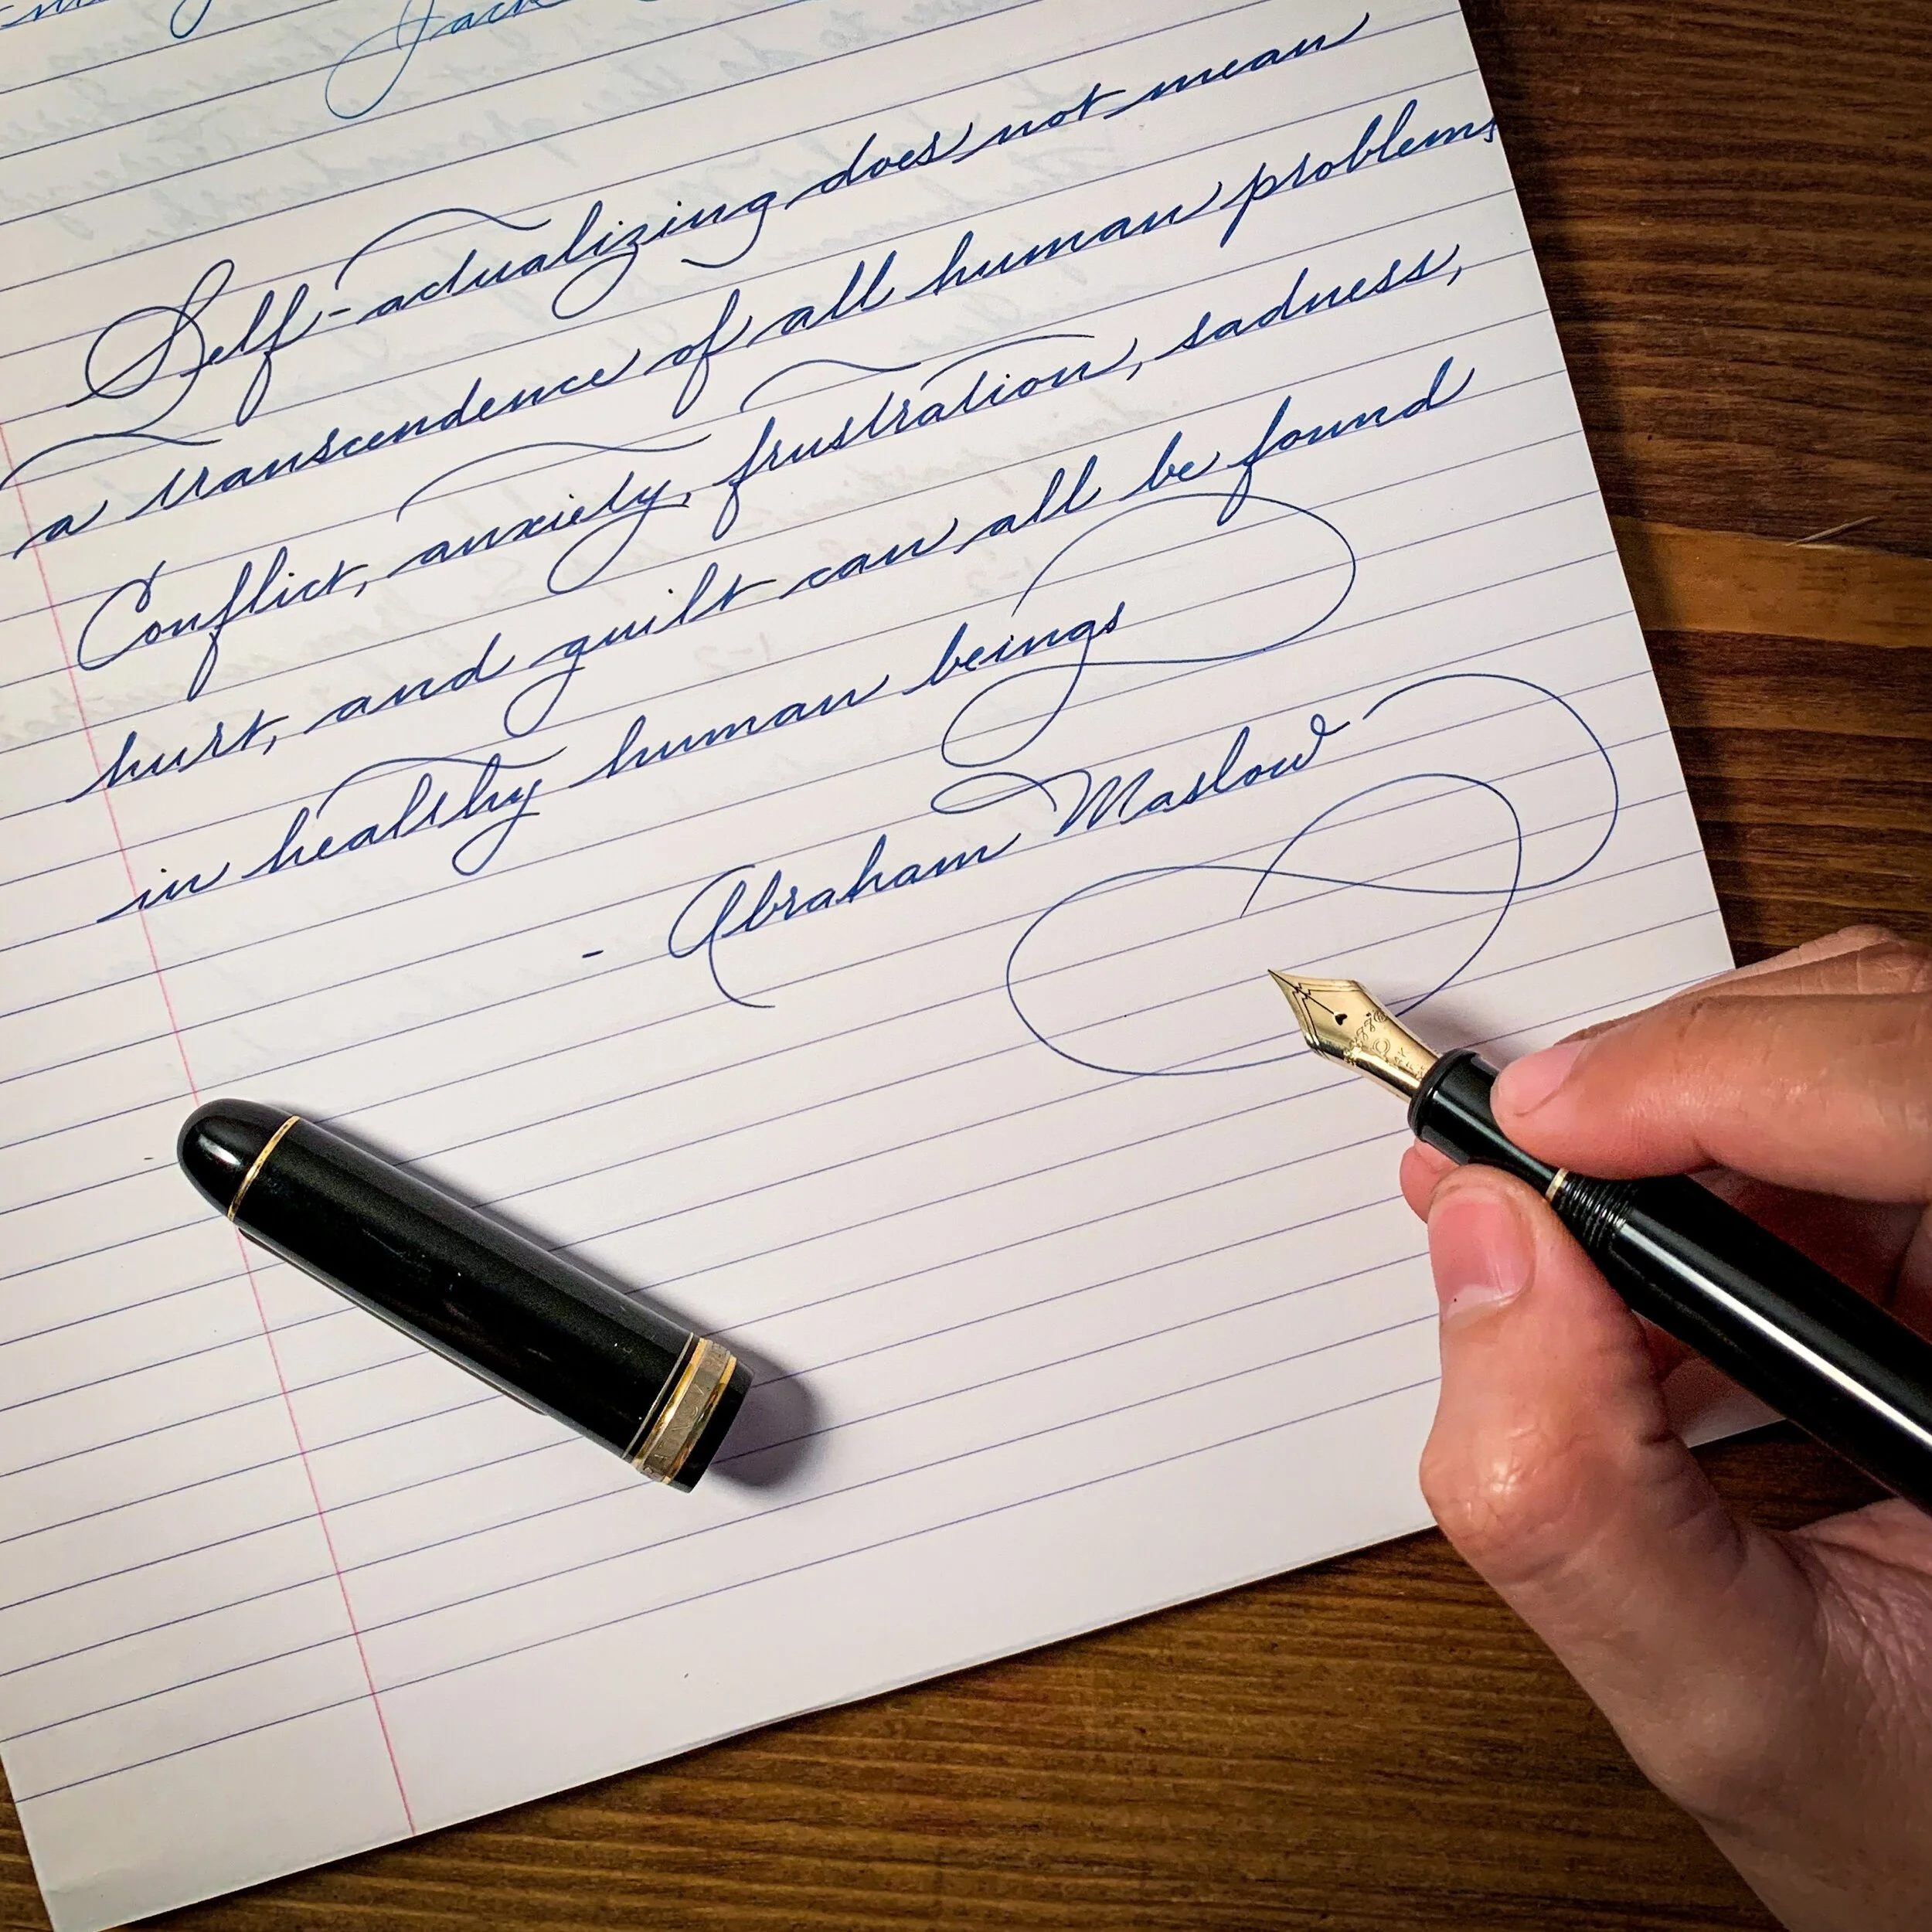 Jack
Self-actualizing does not mean
a transcendence of all human problems
Conflict, anxiety, frustration, sadness,
hurt, and guilt can all be found
in healthy human beings
- Abraham Maslow